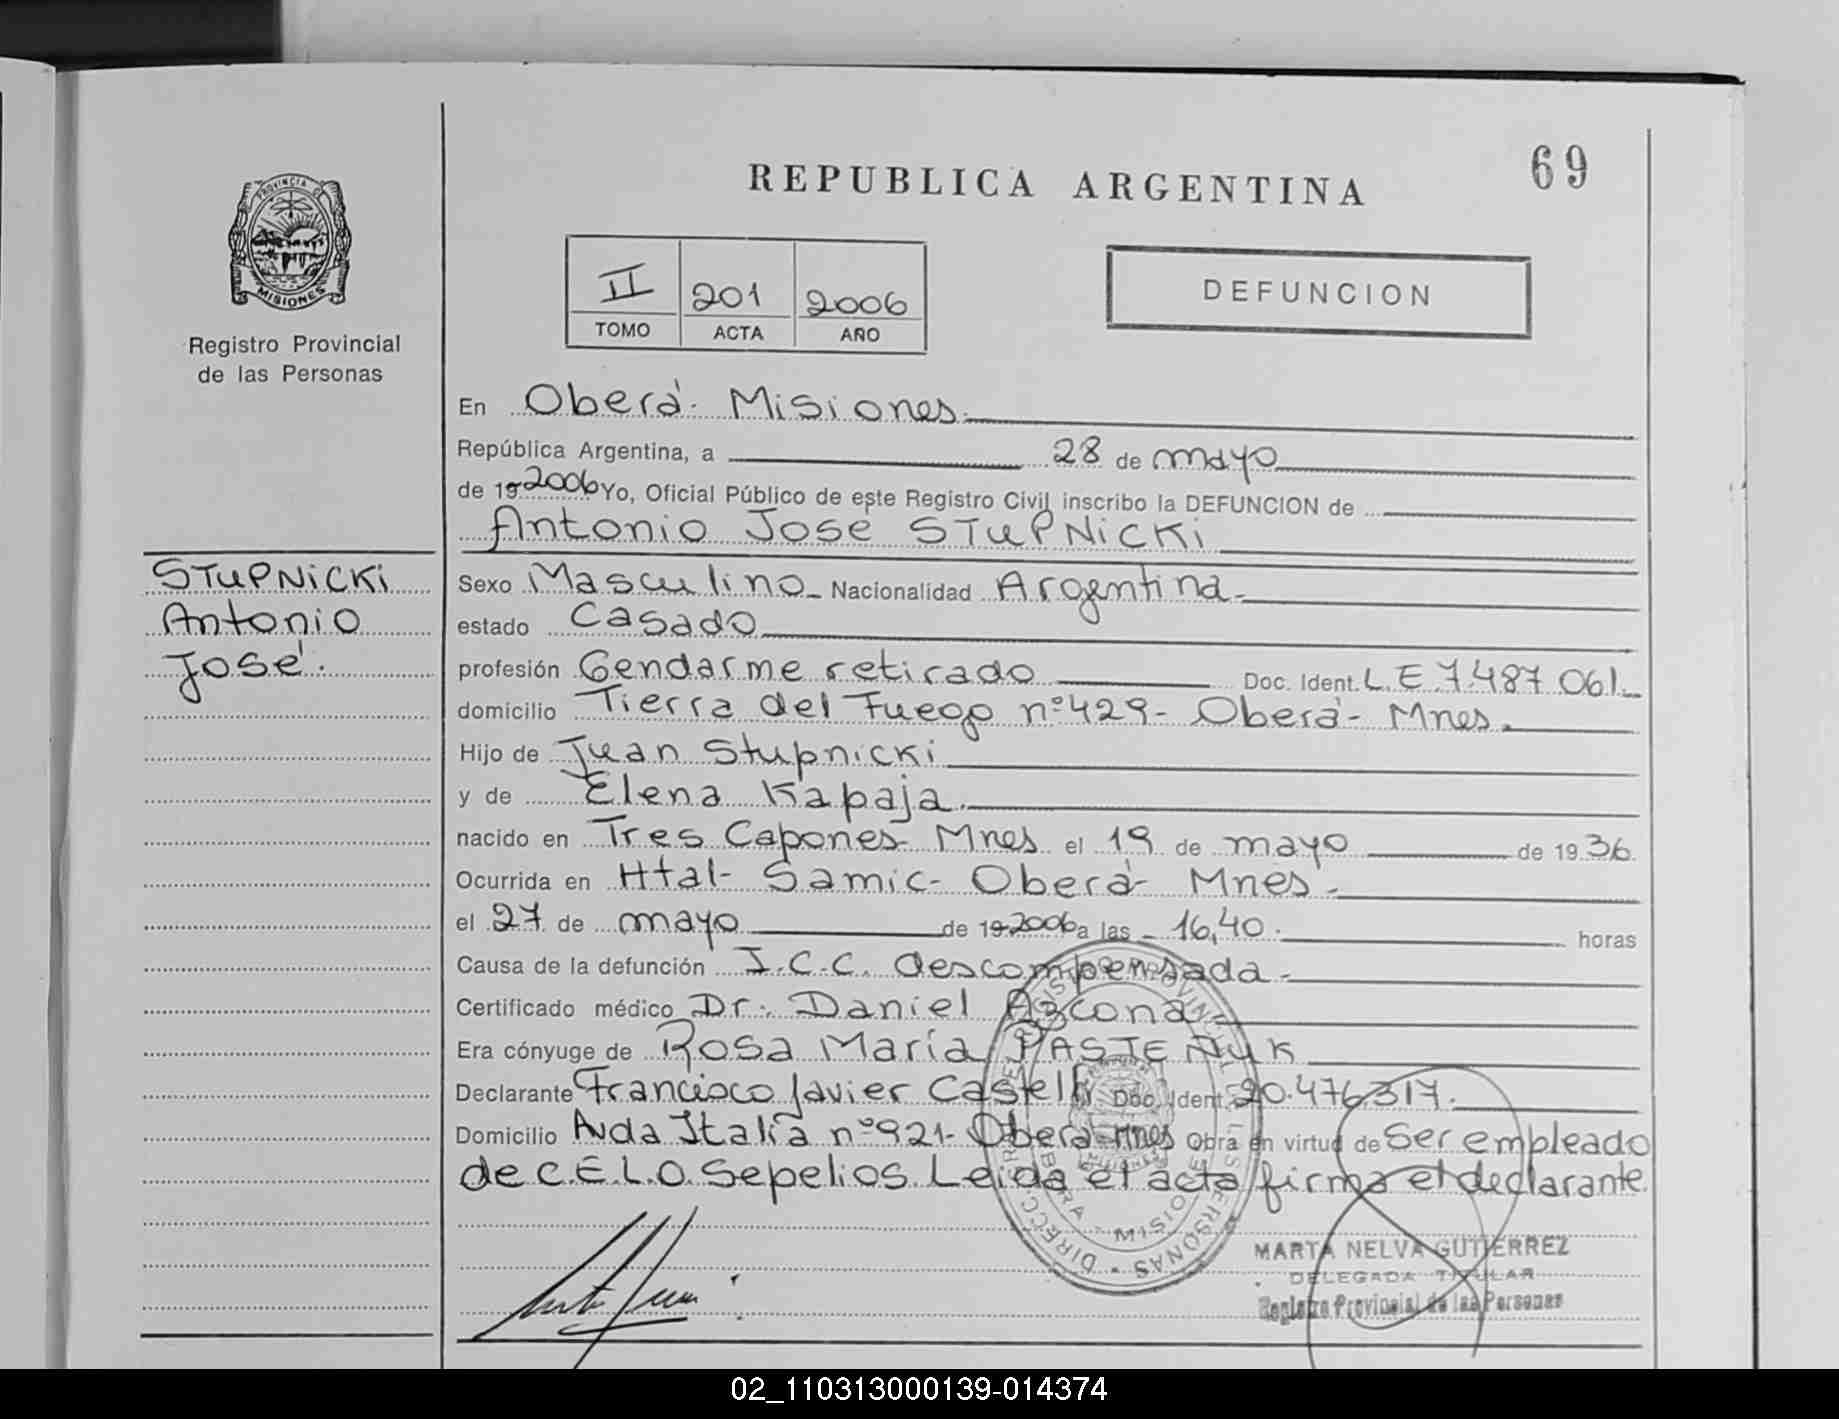 69
REPUBLICA ARGENTINA
PROVINCIA D
MISIONES
Registro Provincial
de las Personas
II 201 2006
TOMO ACTA AÑO
DEFUNCION
En Oberá - Misiones.
República Argentina, a 28 de mayo
de 19 2006 Yo, Oficial Público de este Registro Civil inscribo la DEFUNCION de
Antonio José STUPNICKI
STUPNICKI
Antonio
José.
Sexo Masculino - Nacionalidad Argentina -
estado Casado
profesión Gendarme retirado Doc. Ident. L.E 7.487.061.
domicilio Tierra del Fuego nº 429 - Oberá - Mnes.
Hijo de Juan Stupnicki
y de Elena Kapaja.
nacido en Tres Capones - Mnes el 19 de mayo de 19 36.
Ocurrida en Htal - Samic - Oberá - Mnes -
el 27 de mayo de 19 2006 a las - 16,40. horas
Causa de la defunción I.C.C. descompensada -
Certificado médico Dr: Daniel Azcona -
Era cónyuge de Rosa María PASTENUK
Declarante Francisco Javier Castelli Doc. Ident. 20.476.317.
Domicilio Avda Italia nº 921 - Oberá - Mnes Obra en virtud de Ser empleado
de C.E.L.O. Sepelios. Leida el acta firma el declarante.
MARTA NELVA GUTIERREZ
DELEGADA TITULAR
Registro Provincial de las Personas
02_110313000139-014374